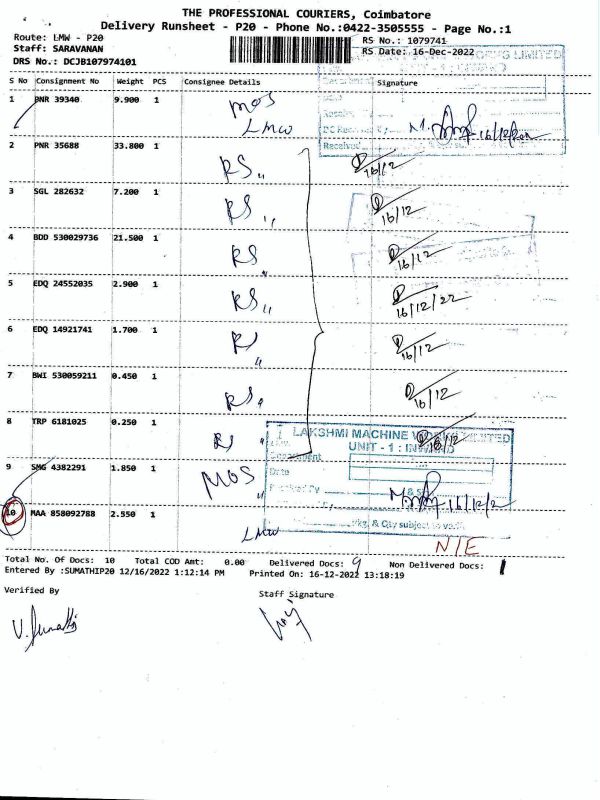 THE PROFESSIONAL COURIERS, Coimbatore
Delivery Runsheet - P20 - Phone No.:0422-3505555 - Page No.:1
Route: LMW - P20
RS No.: 1079741
Staff: SARAVANAN
RS Date: 16-Dec-2022
DRS No.: DCJB107974101
S No Consignment No Weight PCS Consignee Details Signature
1 PNR 39340 9.900 1 MOS
LMW 16/12/2022
Received
2 PNR 35688 33.800 1 RS 16/12
3 SGL 282632 7.200 1 RS 16/12
4 BDD 530029736 21.500 1 RS 16/12
5 EDQ 24552035 2.900 1 RS 16/12/22
6 EDQ 14921741 1.700 1 RS 16/12
7 BWI 530059211 0.450 1 RS 16/12
8 TRP 6181025 0.250 1 RS 16/12
LAKSHMI MACHINE WORKS LIMITED
UNIT - 1 : INWARD
Date
9 SMG 4382291 1.850 1 MOS
10 MAA 858092788 2.550 1 LMW
& Qty subject to
N/E
Total No. Of Docs: 10 Total COD Amt: 0.00 Delivered Docs: 9 Non Delivered Docs: 1
Entered By :SUMATHIP20 12/16/2022 1:12:14 PM Printed On: 16-12-2022 13:18:19
Verified By Staff Signature
V. Sumathi